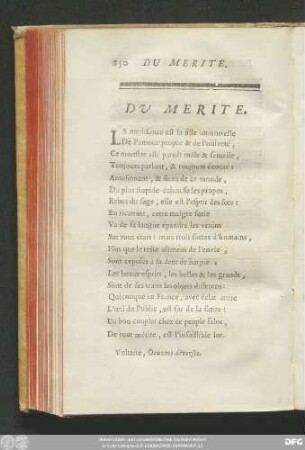 250 DU MERITE.
DU MERITE.
LA médisance est la fille immortelle
De l'amour propre & de l'oisiveté,
Ce monstre ailé paroît mâle & femelle,
Toujours parlant, & toujours écouté :
Amusement, & fléau de ce monde,
Du plus stupide échauffe les propos,
Rebut du sage, elle est l'esprit des sots :
En ricanant, cette maigre furie
Va de sa langue épandre les venins
Sur tous états : mais trois sortes d'humains,
Plus que le reste alimens de l'envie,
Sont exposés à sa dent de harpie :
Les beaux esprits, les belles & les grands,
Sont de ses traits les objets différens:
Quiconque en France, avec éclat attire
L'œil du Public, est sûr de la satire :
Un bon couplet chez ce peuple falot,
De tout mérite, est l'infaillible lot.
Voltaire, Oeuvres diverses.
DFG